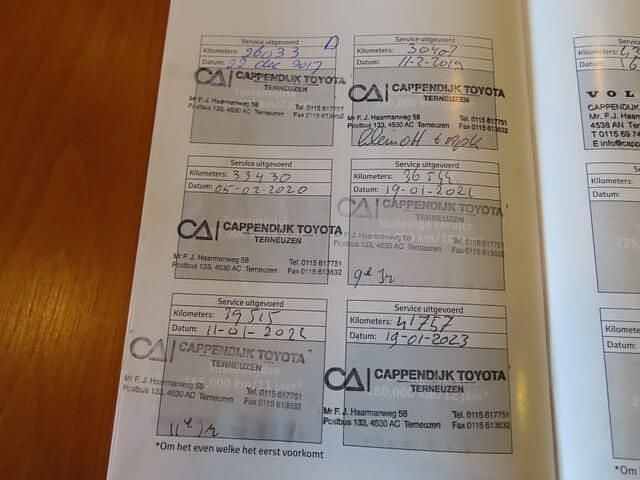 Service uitgevoerd
Kilometers: 26033
Datum: 22 dec 2017
CAPPENDIJK TOYOTA
TERNEUZEN
Mr F. J. Haarmanweg 58
Postbus 133, 4530 AC Terneuzen
Tel. 0115 617751
Fax 0115 613632
Service uitgevoerd
Kilometers: 30401
Datum: 11-2-2019
CAPPENDIJK TOYOTA
TERNEUZEN
Mr F. J. Haarmanweg 58
Postbus 133, 4530 AC Terneuzen
Tel. 0115 617751
Fax 0115 613632
Service uitgevoerd
Kilometers: 33430
Datum: 05-02-2020
CAPPENDIJK TOYOTA
TERNEUZEN
Mr F. J. Haarmanweg 58
Postbus 133, 4530 AC Terneuzen
Tel. 0115 617751
Fax 0115 613632
Service uitgevoerd
Kilometers: 36544
Datum: 19-01-2021
CAPPENDIJK TOYOTA
TERNEUZEN
Volledige service
Mr F. J. Haarmanweg 58
Postbus 133, 4530 AC Terneuzen
Tel. 0115 617751
Fax 0115 613632
9e Jr
Service uitgevoerd
Kilometers: 39515
Datum: 11-01-2022
CAPPENDIJK TOYOTA
TERNEUZEN
165,000 km/11 jaar*
Mr F. J. Haarmanweg 58
Postbus 133, 4530 AC Terneuzen
Tel. 0115 617751
Fax 0115 613632
11e Jr
Service uitgevoerd
Kilometers: 41757
Datum: 19-01-2023
CAPPENDIJK TOYOTA
TERNEUZEN
180,000 km/12 jaar*
Mr F. J. Haarmanweg 58
Postbus 133, 4530 AC Terneuzen
Tel. 0115 617751
Fax 0115 613632
*Om het even welke het eerst voorkomt
Service
Kilometers:
Datum:
VOL
CAPPENDIJK
Mr. F.J. Haar
4538 AN Ter
T 0115 69 74
E info@capp
Service
Kilometers:
Datum:
225,
Service
Kilometers:
Datum:
*Om h